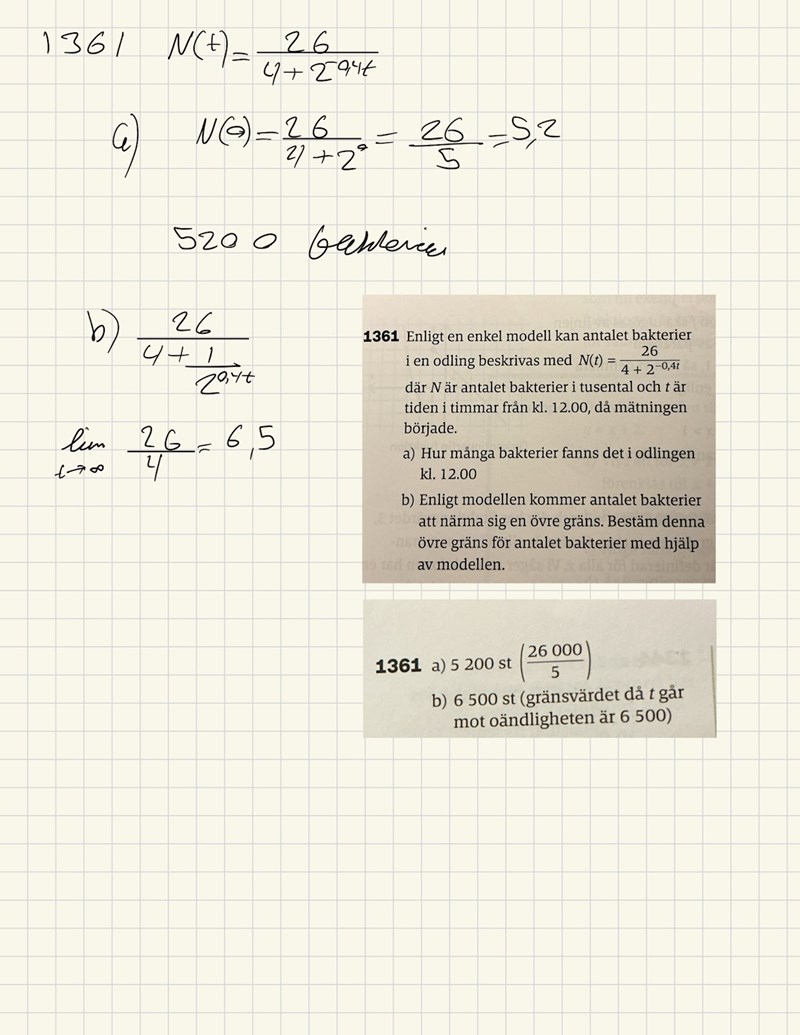 1361 N(t) = 26 / (4 + 2^-0,4t)
a) N(0) = 26 / (4 + 2^0) = 26 / 5 = 5,2
5200 bakterier
b) 26 / (4 + 1 / 2^0,4t)
lim t→∞ 26 / 4 = 6,5
1361 Enligt en enkel modell kan antalet bakterier
i en odling beskrivas med N(t) = 26 / (4 + 2^-0,4t)
där N är antalet bakterier i tusental och t är
tiden i timmar från kl. 12.00, då mätningen
började.
a) Hur många bakterier fanns det i odlingen
kl. 12.00
b) Enligt modellen kommer antalet bakterier
att närma sig en övre gräns. Bestäm denna
övre gräns för antalet bakterier med hjälp
av modellen.
1361 a) 5 200 st (26 000 / 5)
b) 6 500 st (gränsvärdet då t går
mot oändligheten är 6 500)